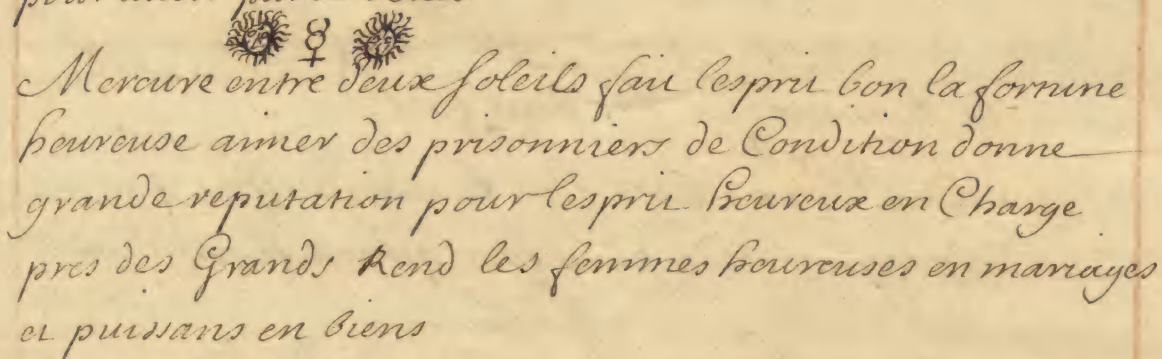 ☉ ☿ ☉
Mercure entre deux soleils fait lesprit bon la fortune
heureuse aimer des prisonniers de Condition donne
grande reputation pour lesprit heureux en Charge
pres des Grands Rend les femmes heureuses en mariages
et puissans en biens